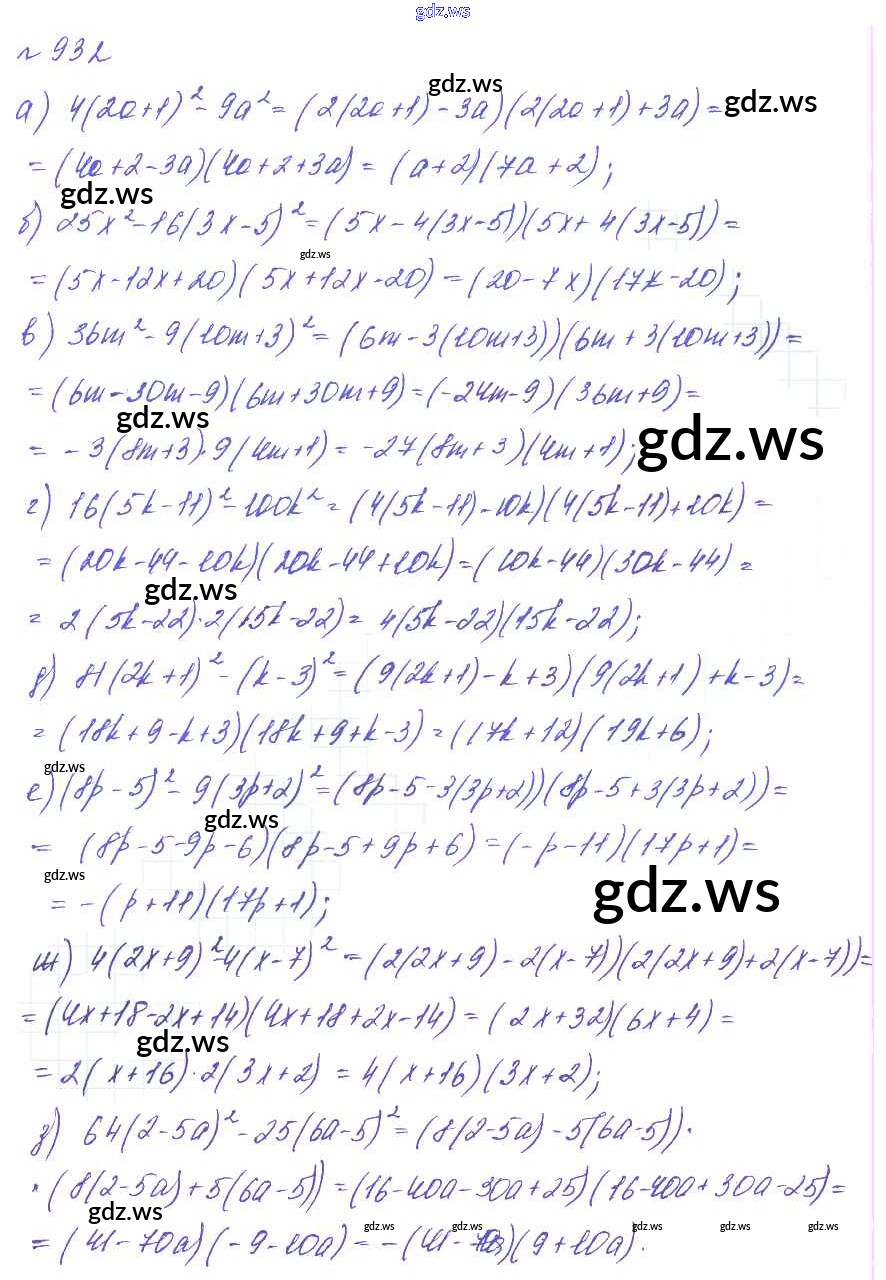 gdz.ws
№ 932
gdz.ws
а) 4(2a+1)² - 9a² = (2(2a+1) - 3a)(2(2a+1)+3a) =
gdz.ws
= (4a+2-3a)(4a+2+3a) = (a+2)(7a+2);
gdz.ws
б) 25x² - 16(3x-5)² = (5x - 4(3x-5))(5x+4(3x-5)) =
gdz.ws
= (5x-12x+20)(5x+12x-20) = (20-7x)(17x-20);
в) 36m² - 9(10m+3)² = (6m - 3(10m+3))(6m + 3(10m+3)) =
= (6m-30m-9)(6m+30m+9) = (-24m-9)(36m+9) =
gdz.ws
gdz.ws
= -3(8m+3)·9(4m+1) = -27(8m+3)(4m+1);
г) 16(5k-11)² - 100k² = (4(5k-11)-10k)(4(5k-11)+10k) =
= (20k-44-10k)(20k-44+10k) = (10k-44)(30k-44) =
gdz.ws
= 2(5k-22)·2(15k-22) = 4(5k-22)(15k-22);
д) 81(2k+1)² - (k-3)² = (9(2k+1)-k+3)(9(2k+1)+k-3) =
= (18k+9-k+3)(18k+9+k-3) = (17k+12)(19k+6);
gdz.ws
е) (8p-5)² - 9(3p+2)² = (8p-5-3(3p+2))(8p-5+3(3p+2)) =
gdz.ws
= (8p-5-9p-6)(8p-5+9p+6) = (-p-11)(17p+1) =
gdz.ws
gdz.ws
= -(p+11)(17p+1);
ж) 4(2x+9)² - 4(x-7)² = (2(2x+9) - 2(x-7))(2(2x+9)+2(x-7)) =
= (4x+18-2x+14)(4x+18+2x-14) = (2x+32)(6x+4) =
gdz.ws
= 2(x+16)·2(3x+2) = 4(x+16)(3x+2);
з) 64(2-5a)² - 25(6a-5)² = (8(2-5a) - 5(6a-5))·
·(8(2-5a)+5(6a-5)) = (16-40a-30a+25)(16-40a+30a-25) =
gdz.ws
gdz.ws gdz.ws gdz.ws gdz.ws gdz.ws
= (41-70a)(-9-10a) = -(41-70a)(9+10a).